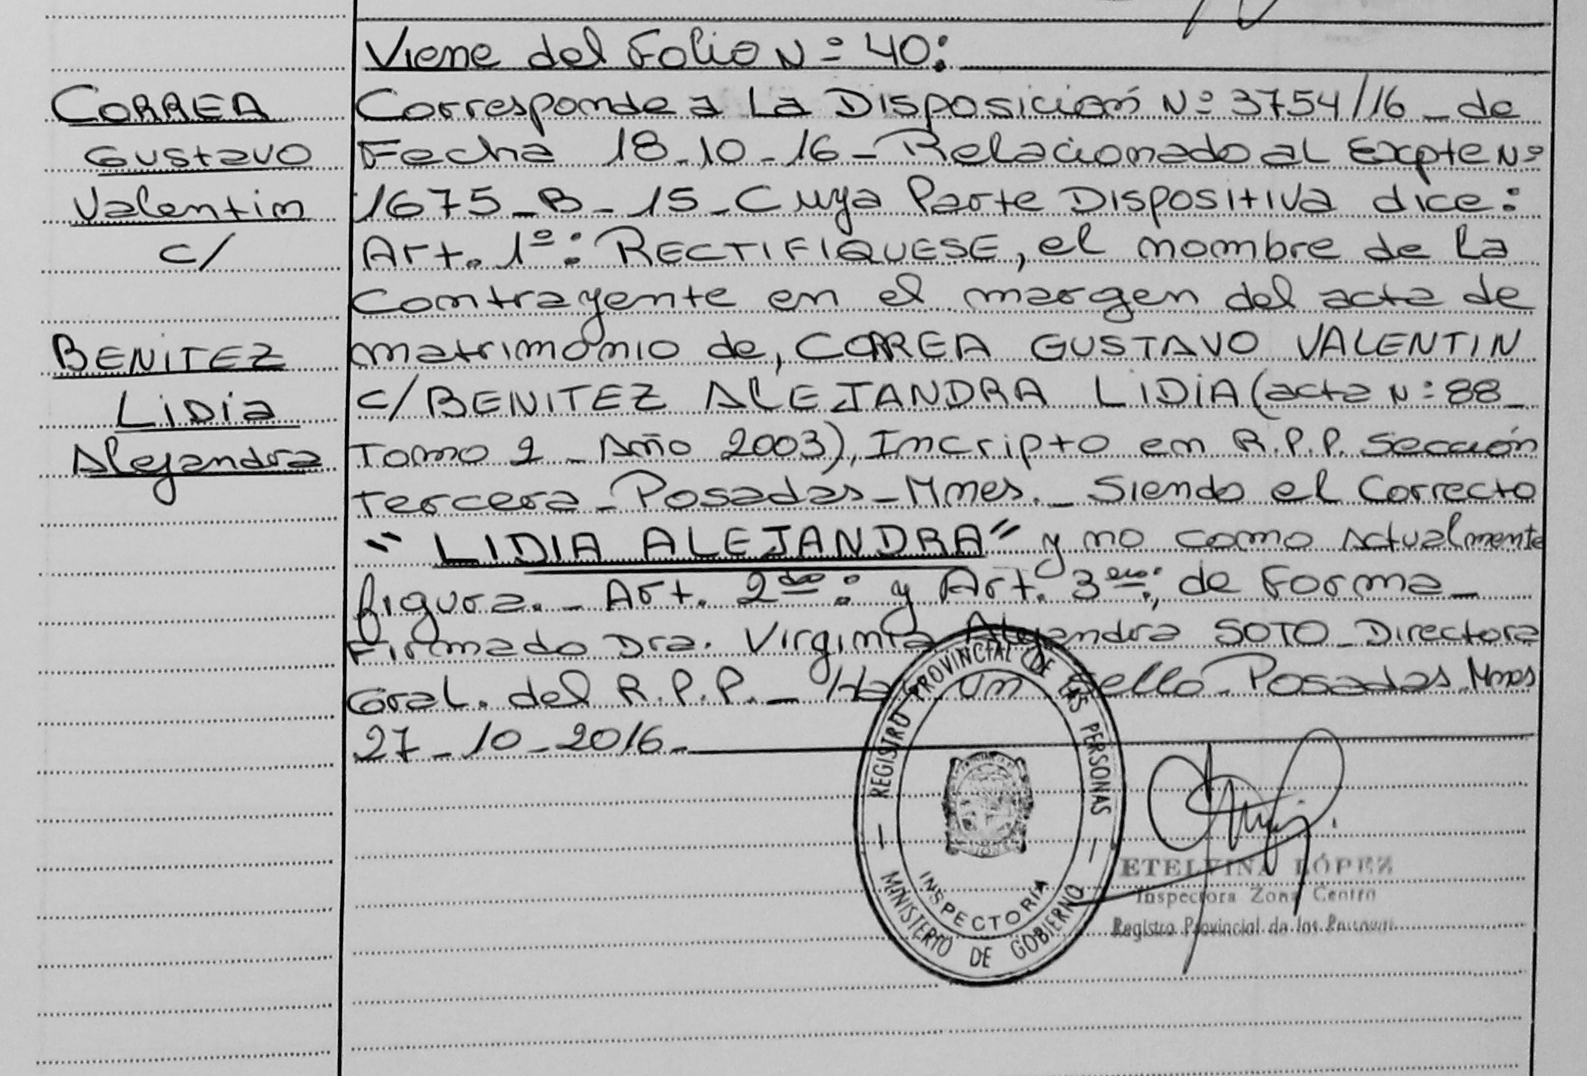 Viene del Folio Nº 40:
CORREA
Gustavo
Valentin
c/
BENITEZ
Lidia
Alejandra
Corresponde a La Disposición Nº 3754/16_ de
Fecha 18-10-16_ Relacionado al Expte Nº
1675_B_15_ Cuya Parte Dispositiva dice:
Art. 1º: RECTIFIQUESE, el nombre de la
contrayente en el margen del acta de
matrimonio de, CORREA GUSTAVO VALENTIN
c/BENITEZ ALEJANDRA LIDIA (acta Nº 88_
Tomo 2_ Año 2003), Incripto en R.P.P. Sección
Tercera_ Posadas_Mnes._ Siendo el Correcto
"LIDIA ALEJANDRA" y no como Actualmente
figura._ Art. 2do: y Art. 3ero:, de Forma_
Firmado Dra. Virginia Alejandra SOTO_Directora
Gral. del R.P.P._ Hay un Sello_ Posadas_Mnes
27_10_2016_
REGISTRO PROVINCIAL DE LAS PERSONAS
INSPECTORIA
MINISTERIO DE GOBIERNO
ETELVINA LÓPEZ
Inspectora Zona Centro
Registro Provincial de las Personas